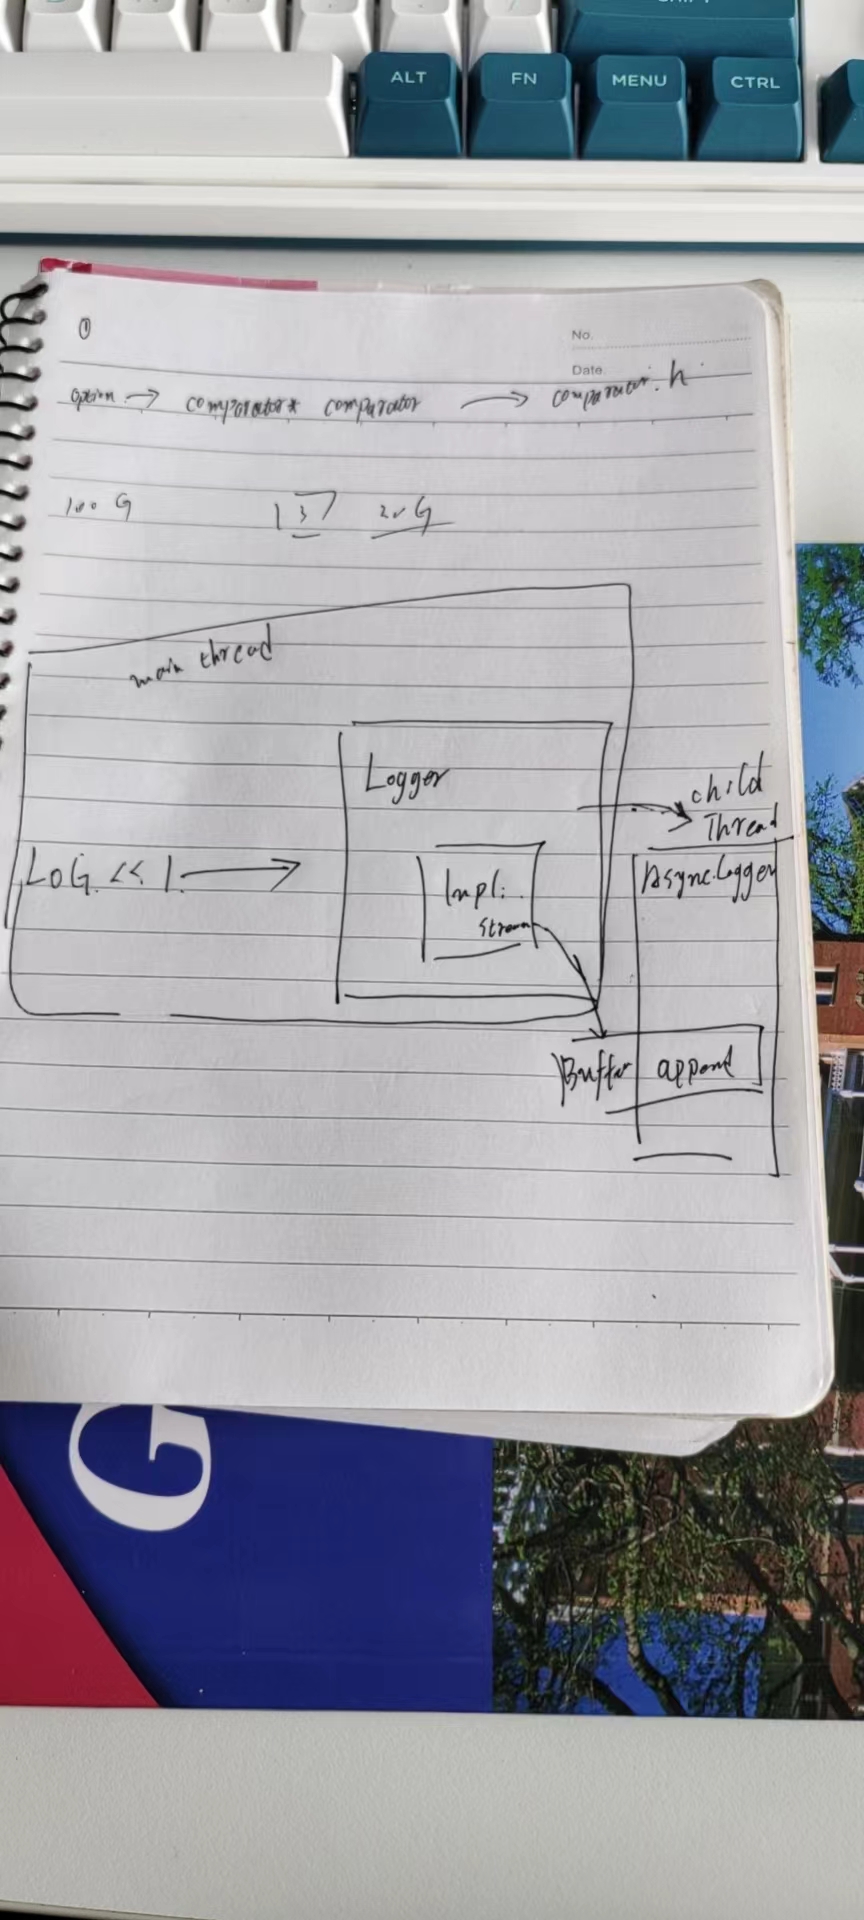 SHIFT
ALT FN MENU CTRL
①
No.
Date.
option → comparator* comparator → comparator.h
100 G 137 20G
main thread
Logger
child
Thread
LOG << 1 →
Impl:
stream
AsyncLogger
Buffer append
G